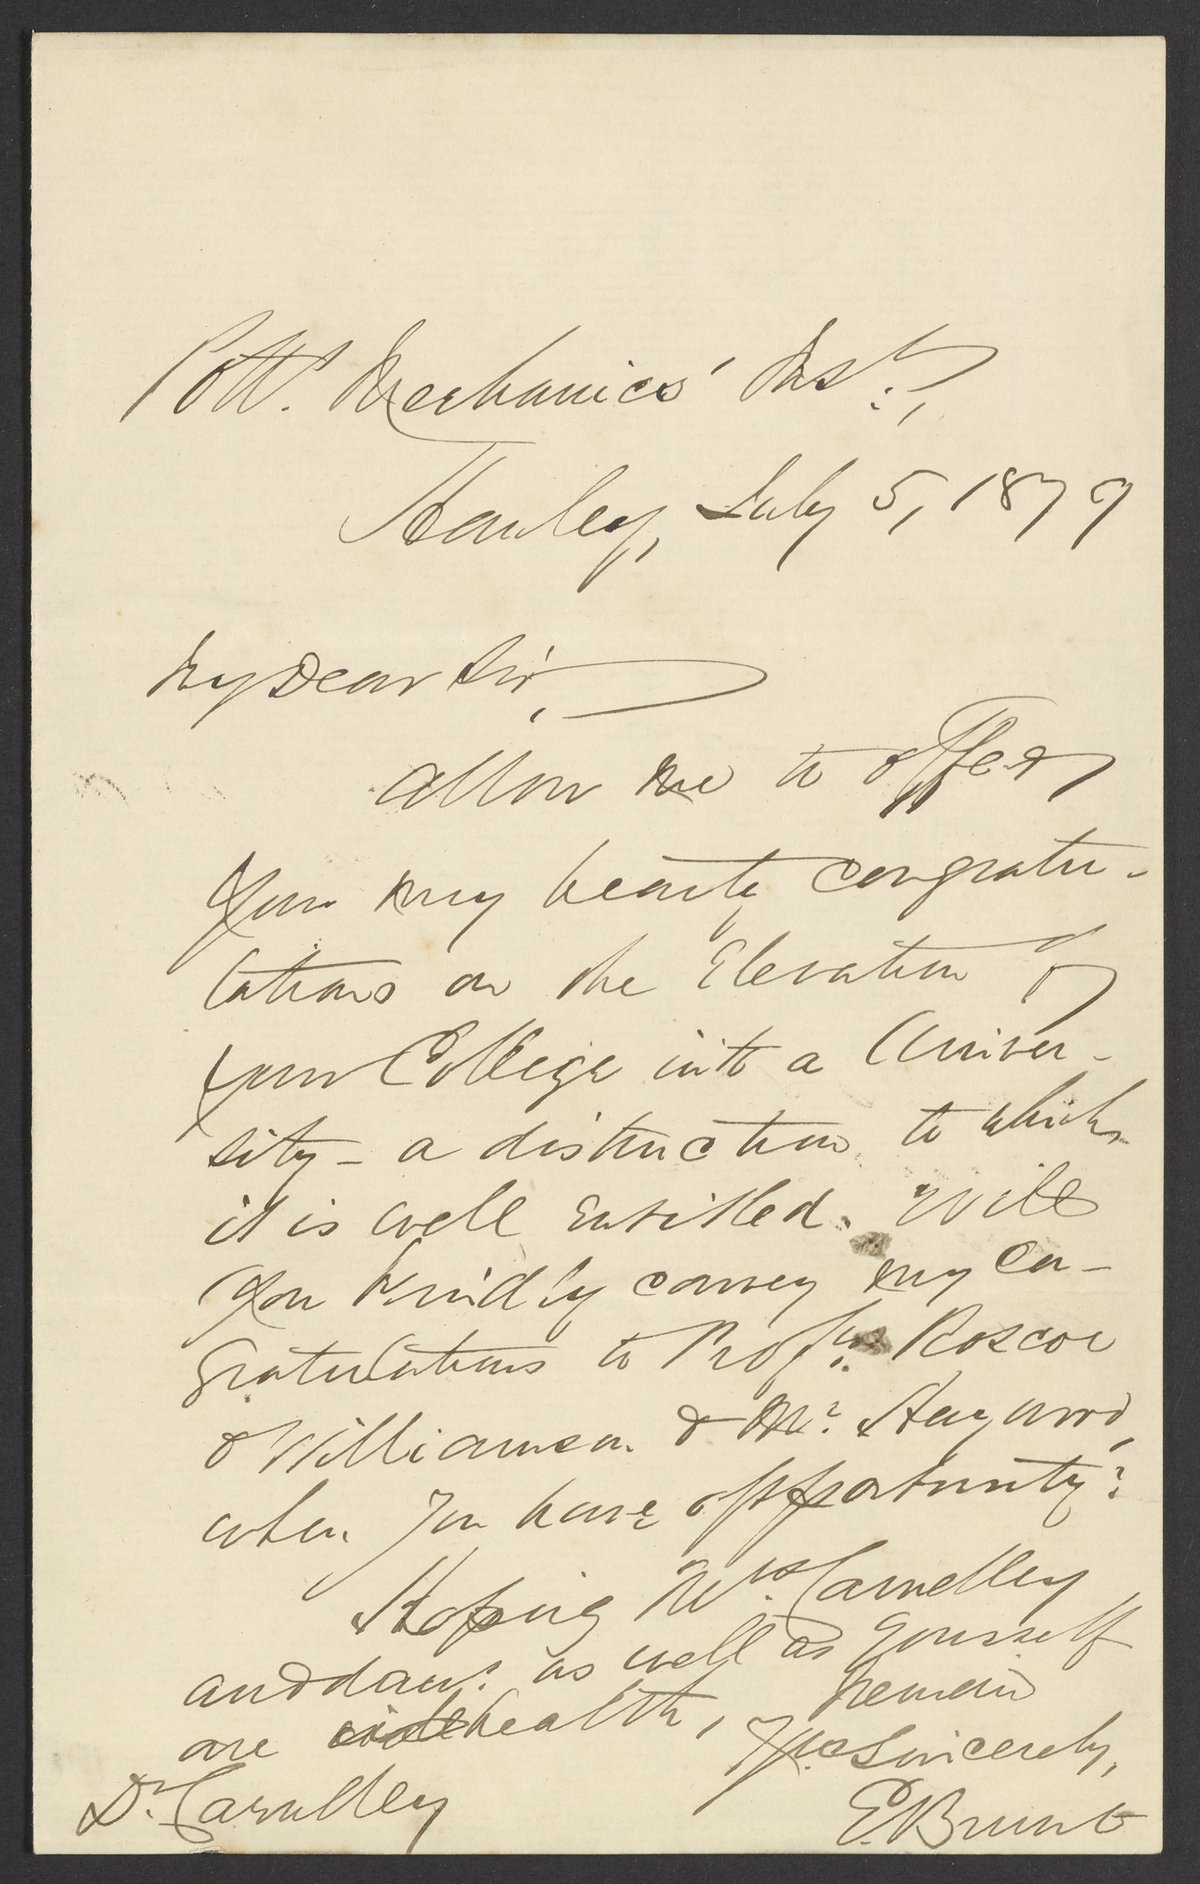 Potts. Mechanics' Inst.,
Hanley, July 5, 1879
My Dear Sir,
Allow me to offer
you my hearty congratu-
lations on the Elevation of
your College into a Univer-
sity - a distinction to which
it is well entitled. Will
you kindly convey my con-
gratulations to Profrs. Roscoe
& Williamson & Mr. Hayward,
when you have opportunity?
Hoping Mrs. Carnelley
and as well as yourself
are health, remain
Yrs. Sincerely,
Dr. Carnelley
E. Brunt